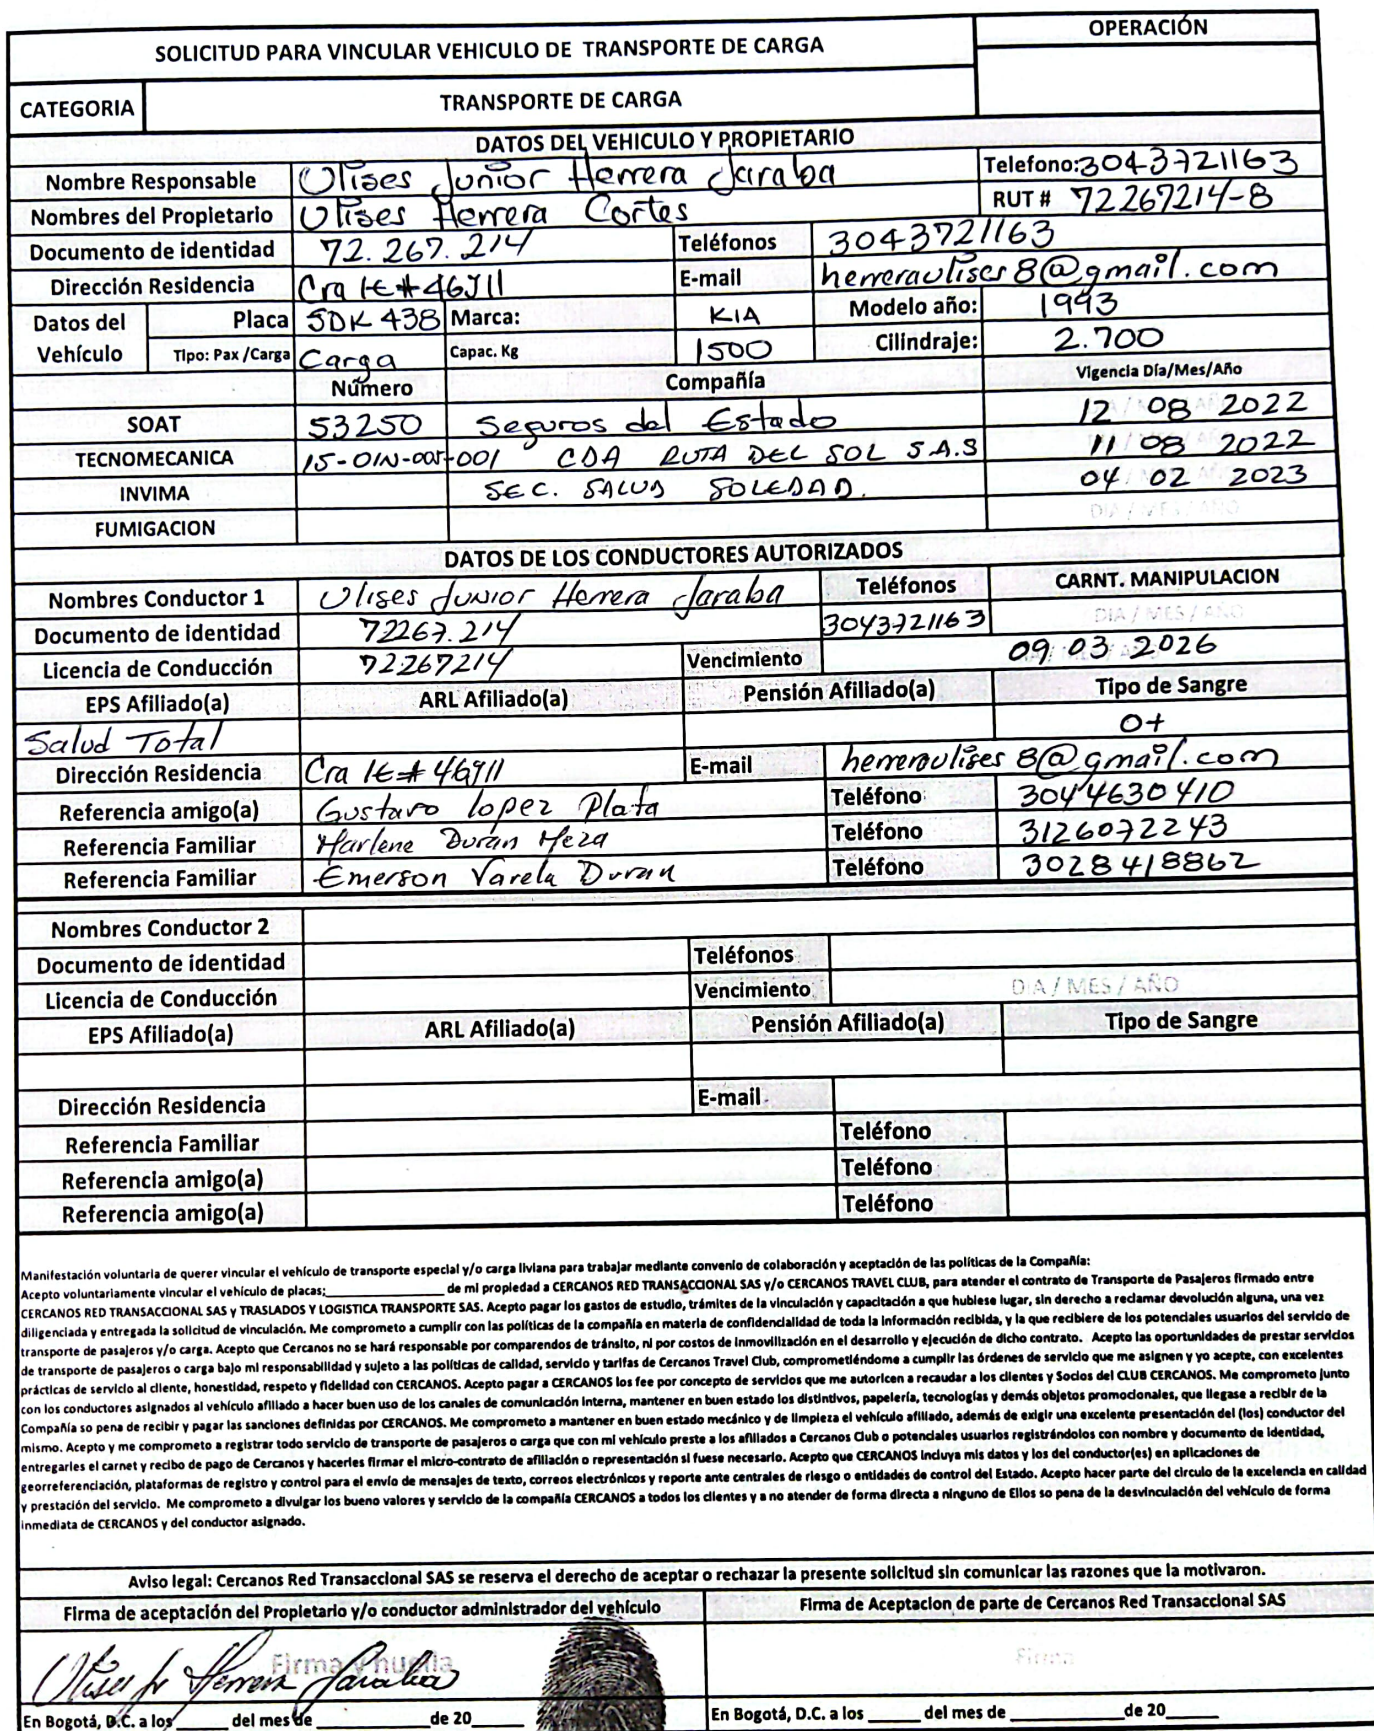 SOLICITUD PARA VINCULAR VEHICULO DE TRANSPORTE DE CARGA OPERACIÓN
CATEGORIA TRANSPORTE DE CARGA
DATOS DEL VEHICULO Y PROPIETARIO
Nombre Responsable Ulises Junior Herrera Jaraba Telefono: 3043721163
Nombres del Propietario Ulises Herrera Cortes RUT # 72267214-8
Documento de identidad 72.267.214 Teléfonos 3043721163
Dirección Residencia Cra 1E# E-mail herreraulises8@gmail.com
Datos del Vehículo Placa SDK 438 Marca: KIA Modelo año: 1993
Tipo: Pax /Carga Carga Capac. Kg 1500 Cilindraje: 2.700
Número Compañía Vigencia Día/Mes/Año
SOAT 53250 Seguros del Estado 12 08 2022
TECNOMECANICA 15-OIN-001 CDA RUTA DEL SOL S.A.S 11 08 2022
INVIMA SEC. SALUD SOLEDAD. 04 02 2023
FUMIGACION DIA / MES / AÑO
DATOS DE LOS CONDUCTORES AUTORIZADOS
Nombres Conductor 1 Ulises Junior Herrera Jaraba Teléfonos CARNT. MANIPULACION
Documento de identidad 72267.214 3043721163 DIA / MES / AÑO
Licencia de Conducción 72267214 Vencimiento 09 03 2026
EPS Afiliado(a) ARL Afiliado(a) Pensión Afiliado(a) Tipo de Sangre
Salud Total O+
Dirección Residencia Cra 1E# E-mail herreraulises8@gmail.com
Referencia amigo(a) Gustavo lopez Plata Teléfono 3044630410
Referencia Familiar Marlene Duran Meza Teléfono 3126072243
Referencia Familiar Emerson Varela Duran Teléfono 3028418862
Nombres Conductor 2
Documento de identidad Teléfonos
Licencia de Conducción Vencimiento DIA / MES / AÑO
EPS Afiliado(a) ARL Afiliado(a) Pensión Afiliado(a) Tipo de Sangre
Dirección Residencia E-mail
Referencia Familiar Teléfono
Referencia amigo(a) Teléfono
Referencia amigo(a) Teléfono
Manifestación voluntaria de querer vincular el vehículo de transporte especial y/o carga liviana para trabajar mediante convenio de colaboración y aceptación de las políticas de la Compañía:
Acepto voluntariamente vincular el vehículo de placas;____________________ de mi propiedad a CERCANOS RED TRANSACCIONAL SAS y/o CERCANOS TRAVEL CLUB, para atender el contrato de Transporte de Pasajeros firmado entre
CERCANOS RED TRANSACCIONAL SAS y TRASLADOS Y LOGISTICA TRANSPORTE SAS. Acepto pagar los gastos de estudio, trámites de la vinculación y capacitación a que hubiese lugar, sin derecho a reclamar devolución alguna, una vez
diligenciada y entregada la solicitud de vinculación. Me comprometo a cumplir con las políticas de la compañía en materia de confidencialidad de toda la información recibida, y la que recibiere de los potenciales usuarios del servicio de
transporte de pasajeros y/o carga. Acepto que Cercanos no se hará responsable por comparendos de tránsito, ni por costos de inmovilización en el desarrollo y ejecución de dicho contrato. Acepto las oportunidades de prestar servicios
de transporte de pasajeros o carga bajo mi responsabilidad y sujeto a las políticas de calidad, servicio y tarifas de Cercanos Travel Club, comprometiéndome a cumplir las órdenes de servicio que me asignen y yo acepte, con excelentes
prácticas de servicio al cliente, honestidad, respeto y fidelidad con CERCANOS. Acepto pagar a CERCANOS los fee por concepto de servicios que me autoricen a recaudar a los clientes y Socios del CLUB CERCANOS. Me comprometo junto
con los conductores asignados al vehículo afiliado a hacer buen uso de los canales de comunicación interna, mantener en buen estado los distintivos, papelería, tecnologías y demás objetos promocionales, que llegase a recibir de la
Compañía so pena de recibir y pagar las sanciones definidas por CERCANOS. Me comprometo a mantener en buen estado mecánico y de limpieza el vehículo afiliado, además de exigir una excelente presentación del (los) conductor del
mismo. Acepto y me comprometo a registrar todo servicio de transporte de pasajeros o carga que con mi vehículo preste a los afiliados a Cercanos Club o potenciales usuarios registrándolos con nombre y documento de identidad,
entregarles el carnet y recibo de pago de Cercanos y hacerles firmar el micro-contrato de afiliación o representación si fuese necesario. Acepto que CERCANOS incluya mis datos y los del conductor(es) en aplicaciones de
georreferenciación, plataformas de registro y control para el envío de mensajes de texto, correos electrónicos y reporte ante centrales de riesgo o entidades de control del Estado. Acepto hacer parte del circulo de la excelencia en calidad
y prestación del servicio. Me comprometo a divulgar los bueno valores y servicio de la compañía CERCANOS a todos los clientes y a no atender de forma directa a ninguno de Ellos so pena de la desvinculación del vehículo de forma
inmediata de CERCANOS y del conductor asignado.
Aviso legal: Cercanos Red Transaccional SAS se reserva el derecho de aceptar o rechazar la presente solicitud sin comunicar las razones que la motivaron.
Firma de aceptación del Propietario y/o conductor administrador del vehículo Firma de Aceptacion de parte de Cercanos Red Transaccional SAS
Ulises Jr Herrera Jaraba Firma y huella Firma
En Bogotá, D.C. a los ______ del mes de ____________ de 20______ En Bogotá, D.C. a los ______ del mes de ____________ de 20______